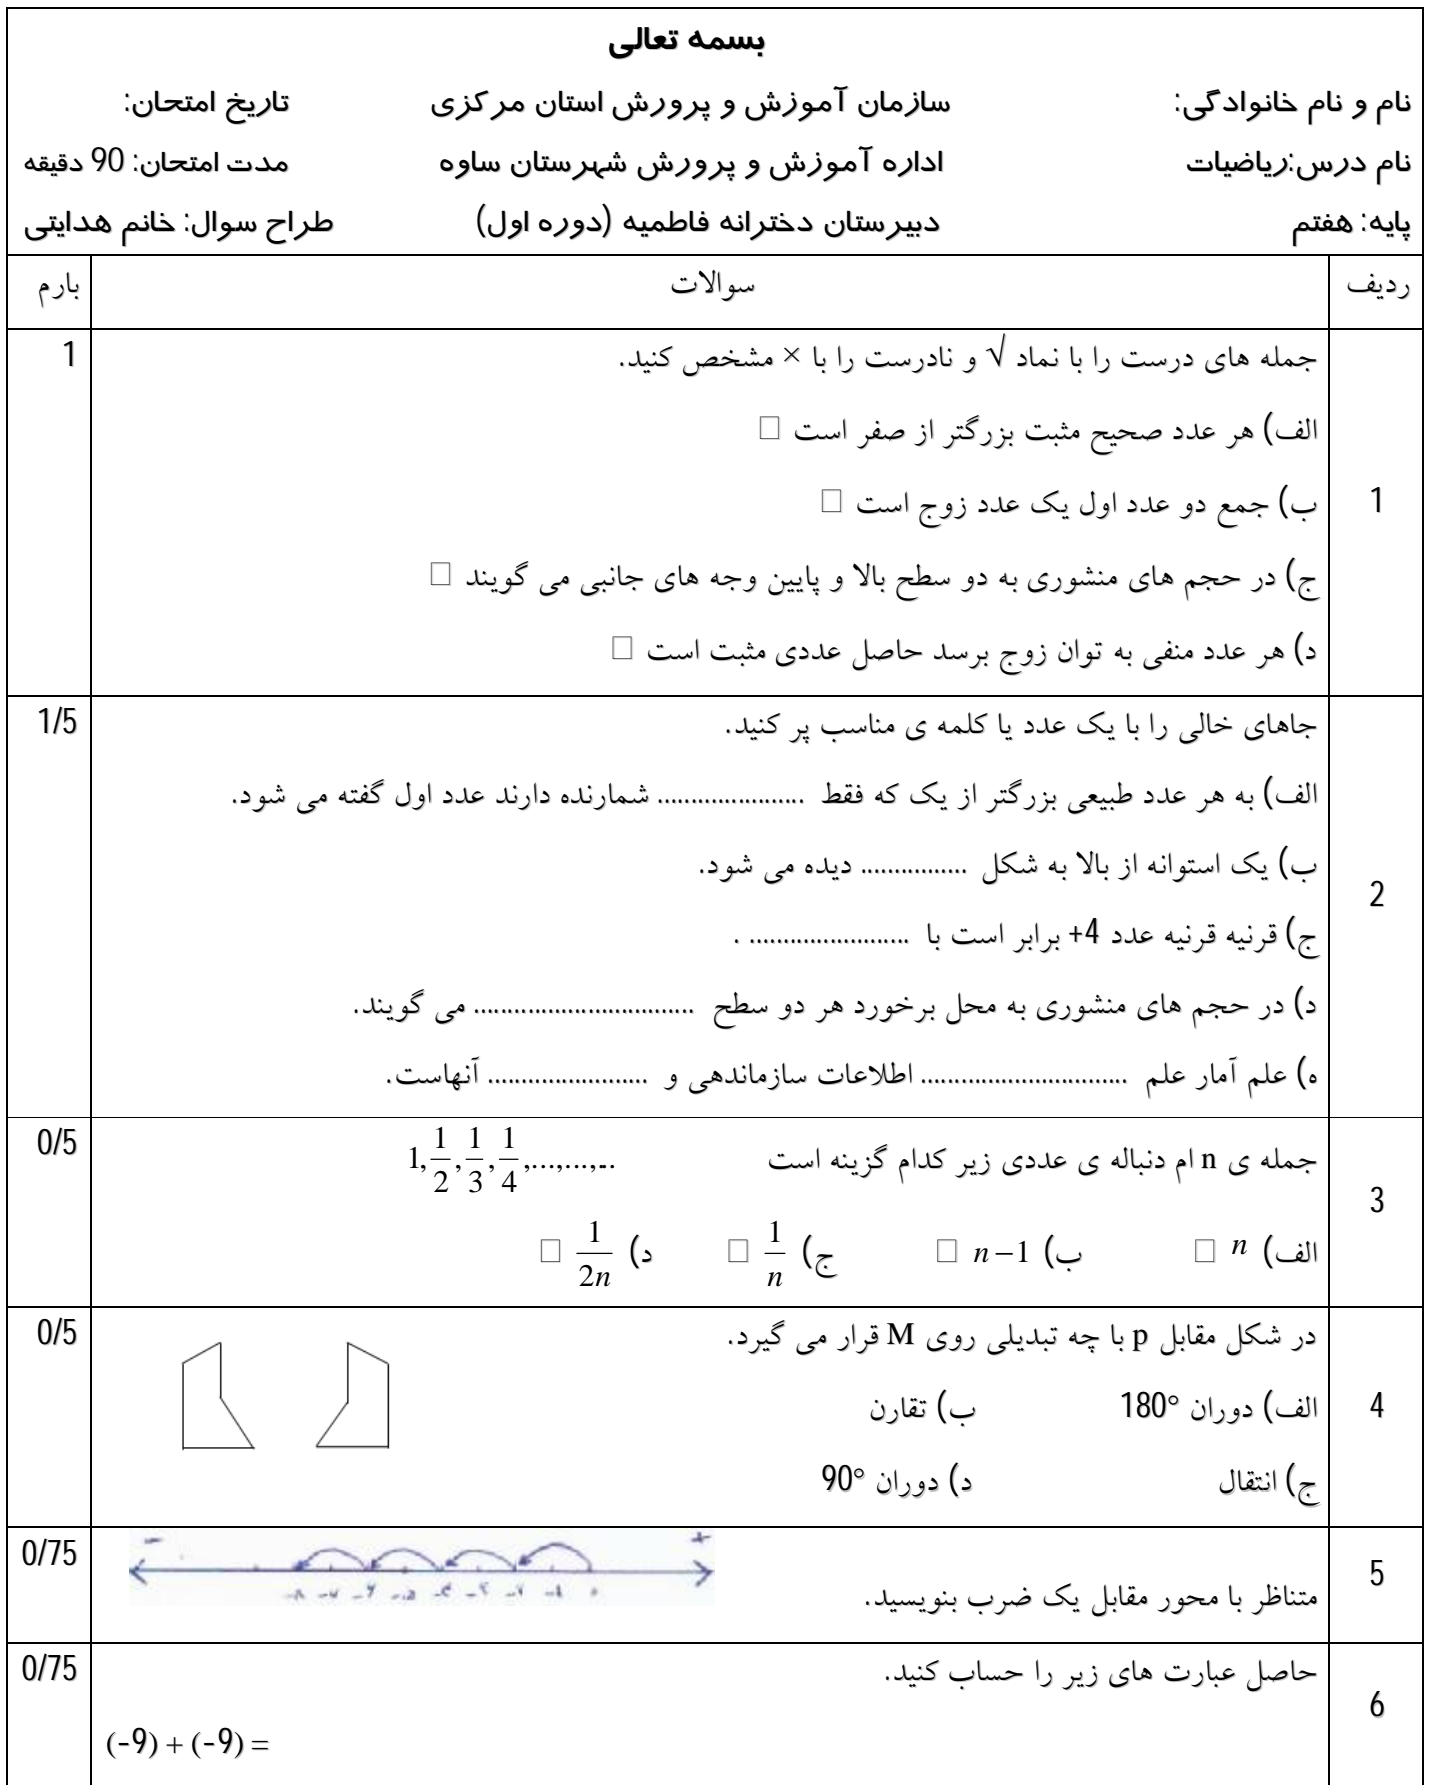 بسمه تعالی
نام و نام خانوادگی: سازمان آموزش و پرورش استان مرکزی تاریخ امتحان:
نام درس:ریاضیات اداره آموزش و پرورش شهرستان ساوه مدت امتحان: 90 دقیقه
پایه: هفتم دبیرستان دخترانه فاطمیه (دوره اول) طراح سوال: خانم هدایتی
ردیف سوالات بارم
1 جمله های درست را با نماد √ و نادرست را با × مشخص کنید. 1
الف) هر عدد صحیح مثبت بزرگتر از صفر است □
ب) جمع دو عدد اول یک عدد زوج است □
ج) در حجم های منشوری به دو سطح بالا و پایین وجه های جانبی می گویند □
د) هر عدد منفی به توان زوج برسد حاصل عددی مثبت است □
2 جاهای خالی را با یک عدد یا کلمه ی مناسب پر کنید. 1/5
الف) به هر عدد طبیعی بزرگتر از یک که فقط ...................... شمارنده دارند عدد اول گفته می شود.
ب) یک استوانه از بالا به شکل ................ دیده می شود.
ج) قرنیه قرنیه عدد 4+ برابر است با ........................ .
د) در حجم های منشوری به محل برخورد هر دو سطح ................................. می گویند.
ه) علم آمار علم ............................... اطلاعات سازماندهی و ........................ آنهاست.
3 جمله ی n ام دنباله ی عددی زیر کدام گزینه است 1,1/2,1/3,1/4,...,...,... 0/5
الف) n □ ب) n−1 □ ج) 1/n □ د) 1/2n □
4 در شکل مقابل p با چه تبدیلی روی M قرار می گیرد. 0/5
الف) دوران 180° ب) تقارن
ج) انتقال د) دوران 90°
− +
5 متناظر با محور مقابل یک ضرب بنویسید. 0/75
-۸ -۷ -۶ -۵ -۴ -۳ -۲ -۱ ۰
6 حاصل عبارت های زیر را حساب کنید. 0/75
(-9) + (-9) =